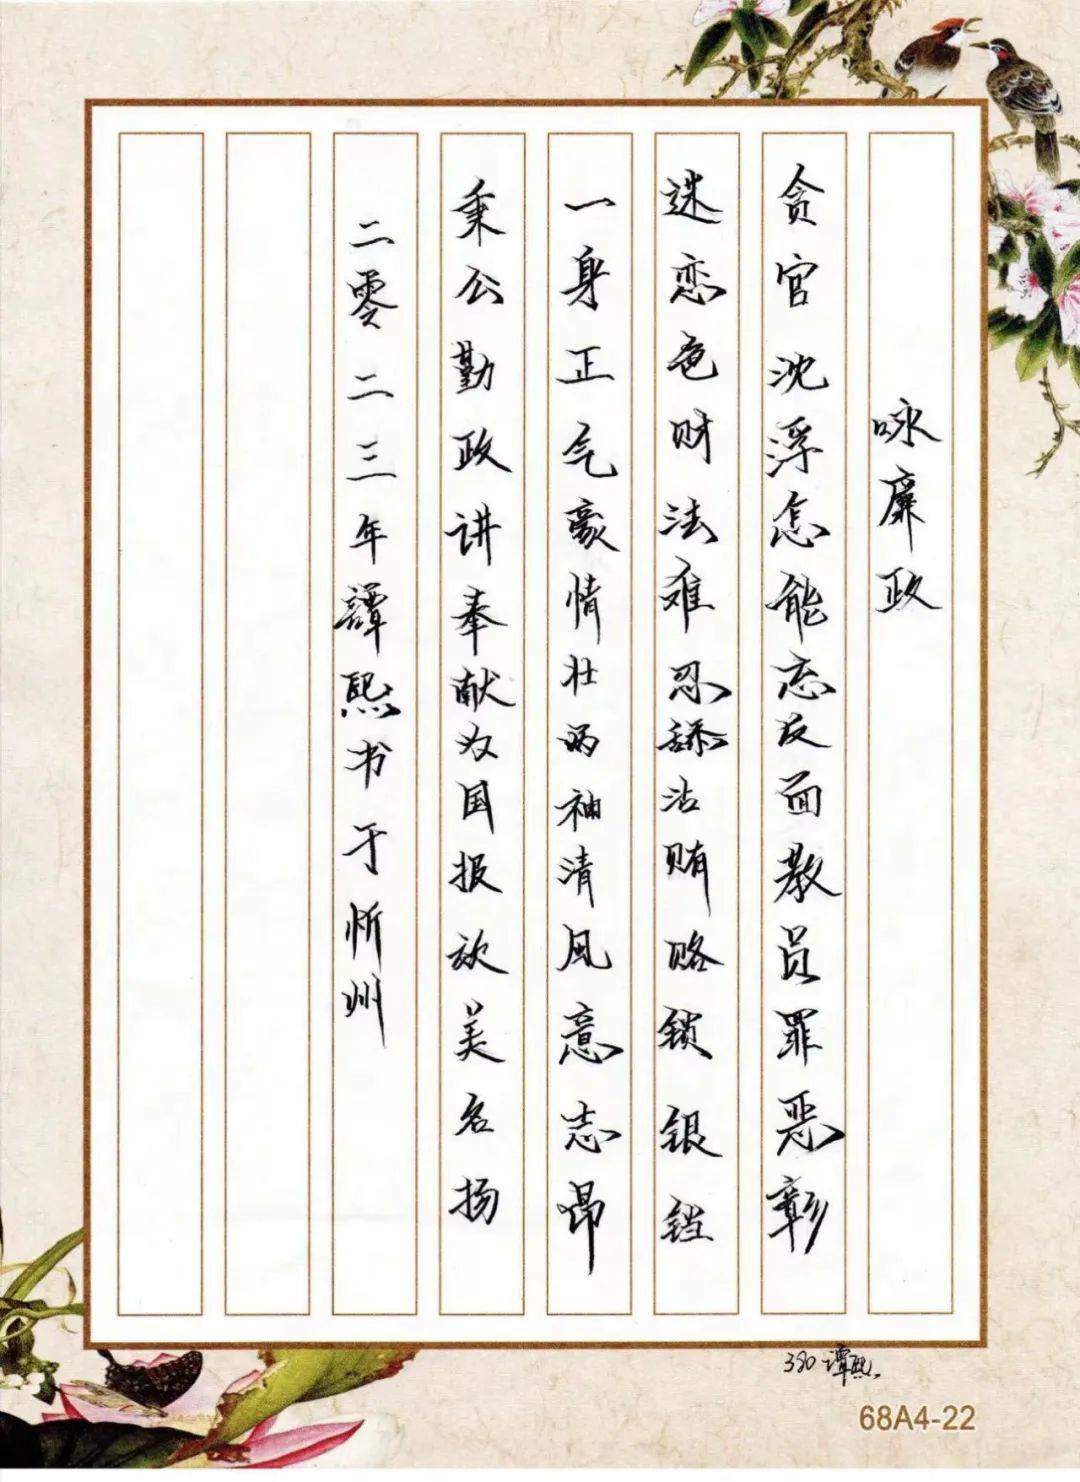 咏廉政
贪官沈浮怎能忘反面教员罪恶彰
迷恋色财法难忍舔沾贿赂锁银铛
一身正气豪情壮两袖清风意志昂
秉公勤政讲奉献为国报效美名扬
二零二三年譚熙书于忻州
330 谭熙
68A4-22